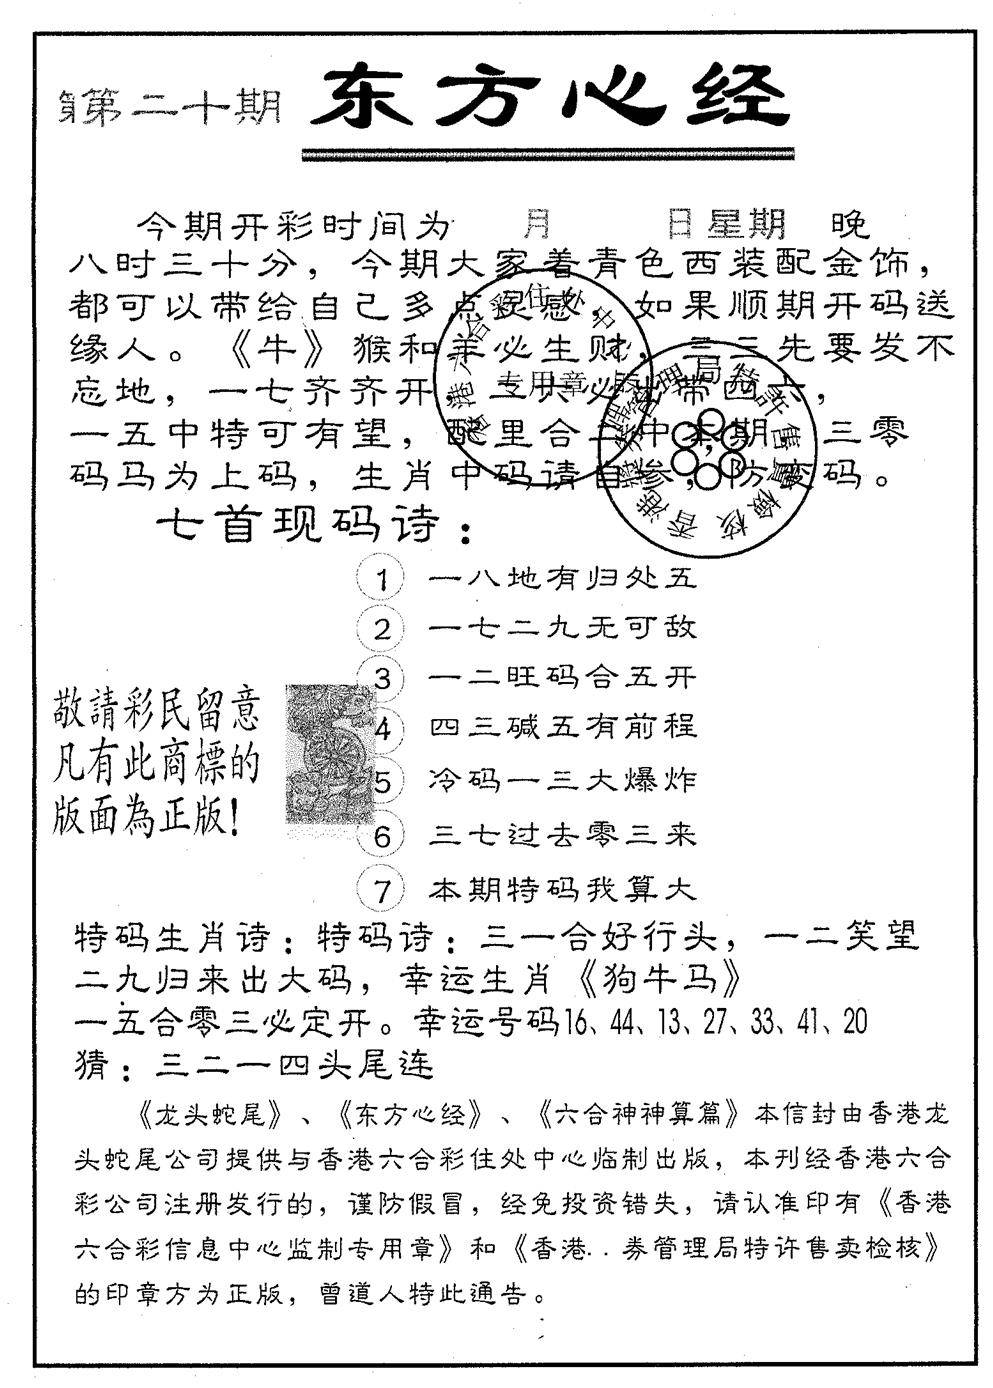 第二十期 东方心经
今期开彩时间为 月 日星期 晚
八时三十分，今期大家着青色西装配金饰，
都可以带给自己多点灵感，如果顺期开码送
缘人。《牛》猴和羊必生财，三三先要发不
忘地，一七齐齐开，二六必出带四六，
一五中特可有望，配里合十中本期，三零
码马为上码，生肖中码请自参，防冷码。
专用章
七首现码诗：
1 一八地有归处五
2 一七二九无可敌
3 一二旺码合五开
4 四三碱五有前程
5 冷码一三大爆炸
6 三七过去零三来
7 本期特码我算大
敬請彩民留意
凡有此商標的
版面為正版!
特码生肖诗：特码诗：三一合好行头，一二笑望
二九归来出大码，幸运生肖《狗牛马》
一五合零三必定开。幸运号码16、44、13、27、33、41、20
猜：三二一四头尾连
《龙头蛇尾》、《东方心经》、《六合神神算篇》本信封由香港龙
头蛇尾公司提供与香港六合彩住处中心临制出版，本刊经香港六合
彩公司注册发行的，谨防假冒，经免投资错失，请认准印有《香港
六合彩信息中心监制专用章》和《香港..券管理局特许售卖检核》
的印章方为正版，曾道人特此通告。